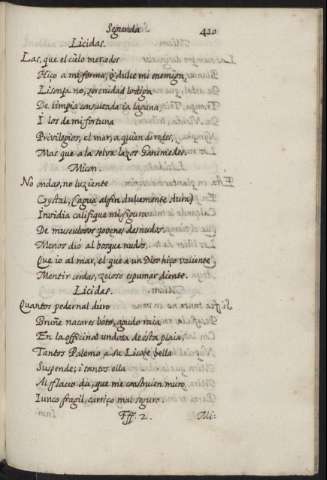 Segunda. 420
Licidas.
Las, que el cielo mercedes
Hiço a mi forma, ò dulce mi enemiga,
Lisonja no, serenidad lo diga
De limpia consultada ia laguna,
I los de mi fortuna
Privilegios, el mar, a quien di redes,
Mas que a la selva lazos Ganimedes.
Micon.
No ondas, no luziente
Crystal, (agua al fin dulcemente dura)
Invidia califique mi figura
De musculosos jovenes desnudos.
Menos dio al bosque nudos,
Que io al mar, el que a un Dios hiço valiente
Mentir cerdas, zeloso espumar diente.
Licidas.
Quantos pedernal duro
Bruñe nacares boto, agudo raia
En la officina undosa de esta plaia,
Tantos Palemo a su Licote bella
Suspende; i tantos ella
Al flaco da, que me construien muro
Iunco fragil, carriço mal seguro.
Fff. 2. Mi: